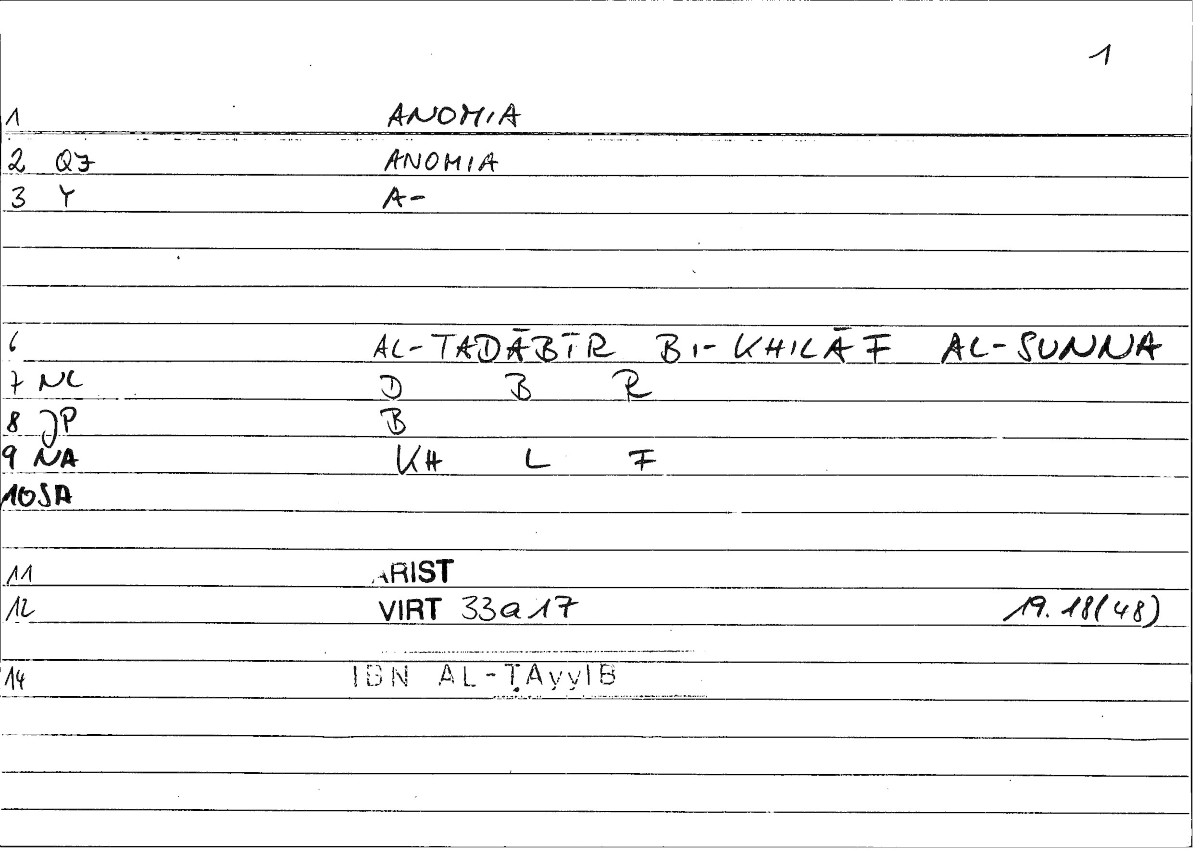 1
1 ANOMIA
2 Q7 ANOMIA
3 Y A-
6 AL-TADĀBĪR BI-KHILĀF AL-SUNNA
7 NL D B R
8 JP B
9 NA KH L F
10 SA
11 ARIST
12 VIRT 33a17 19.18(48)
14 IBN AL-ṬAyyIB